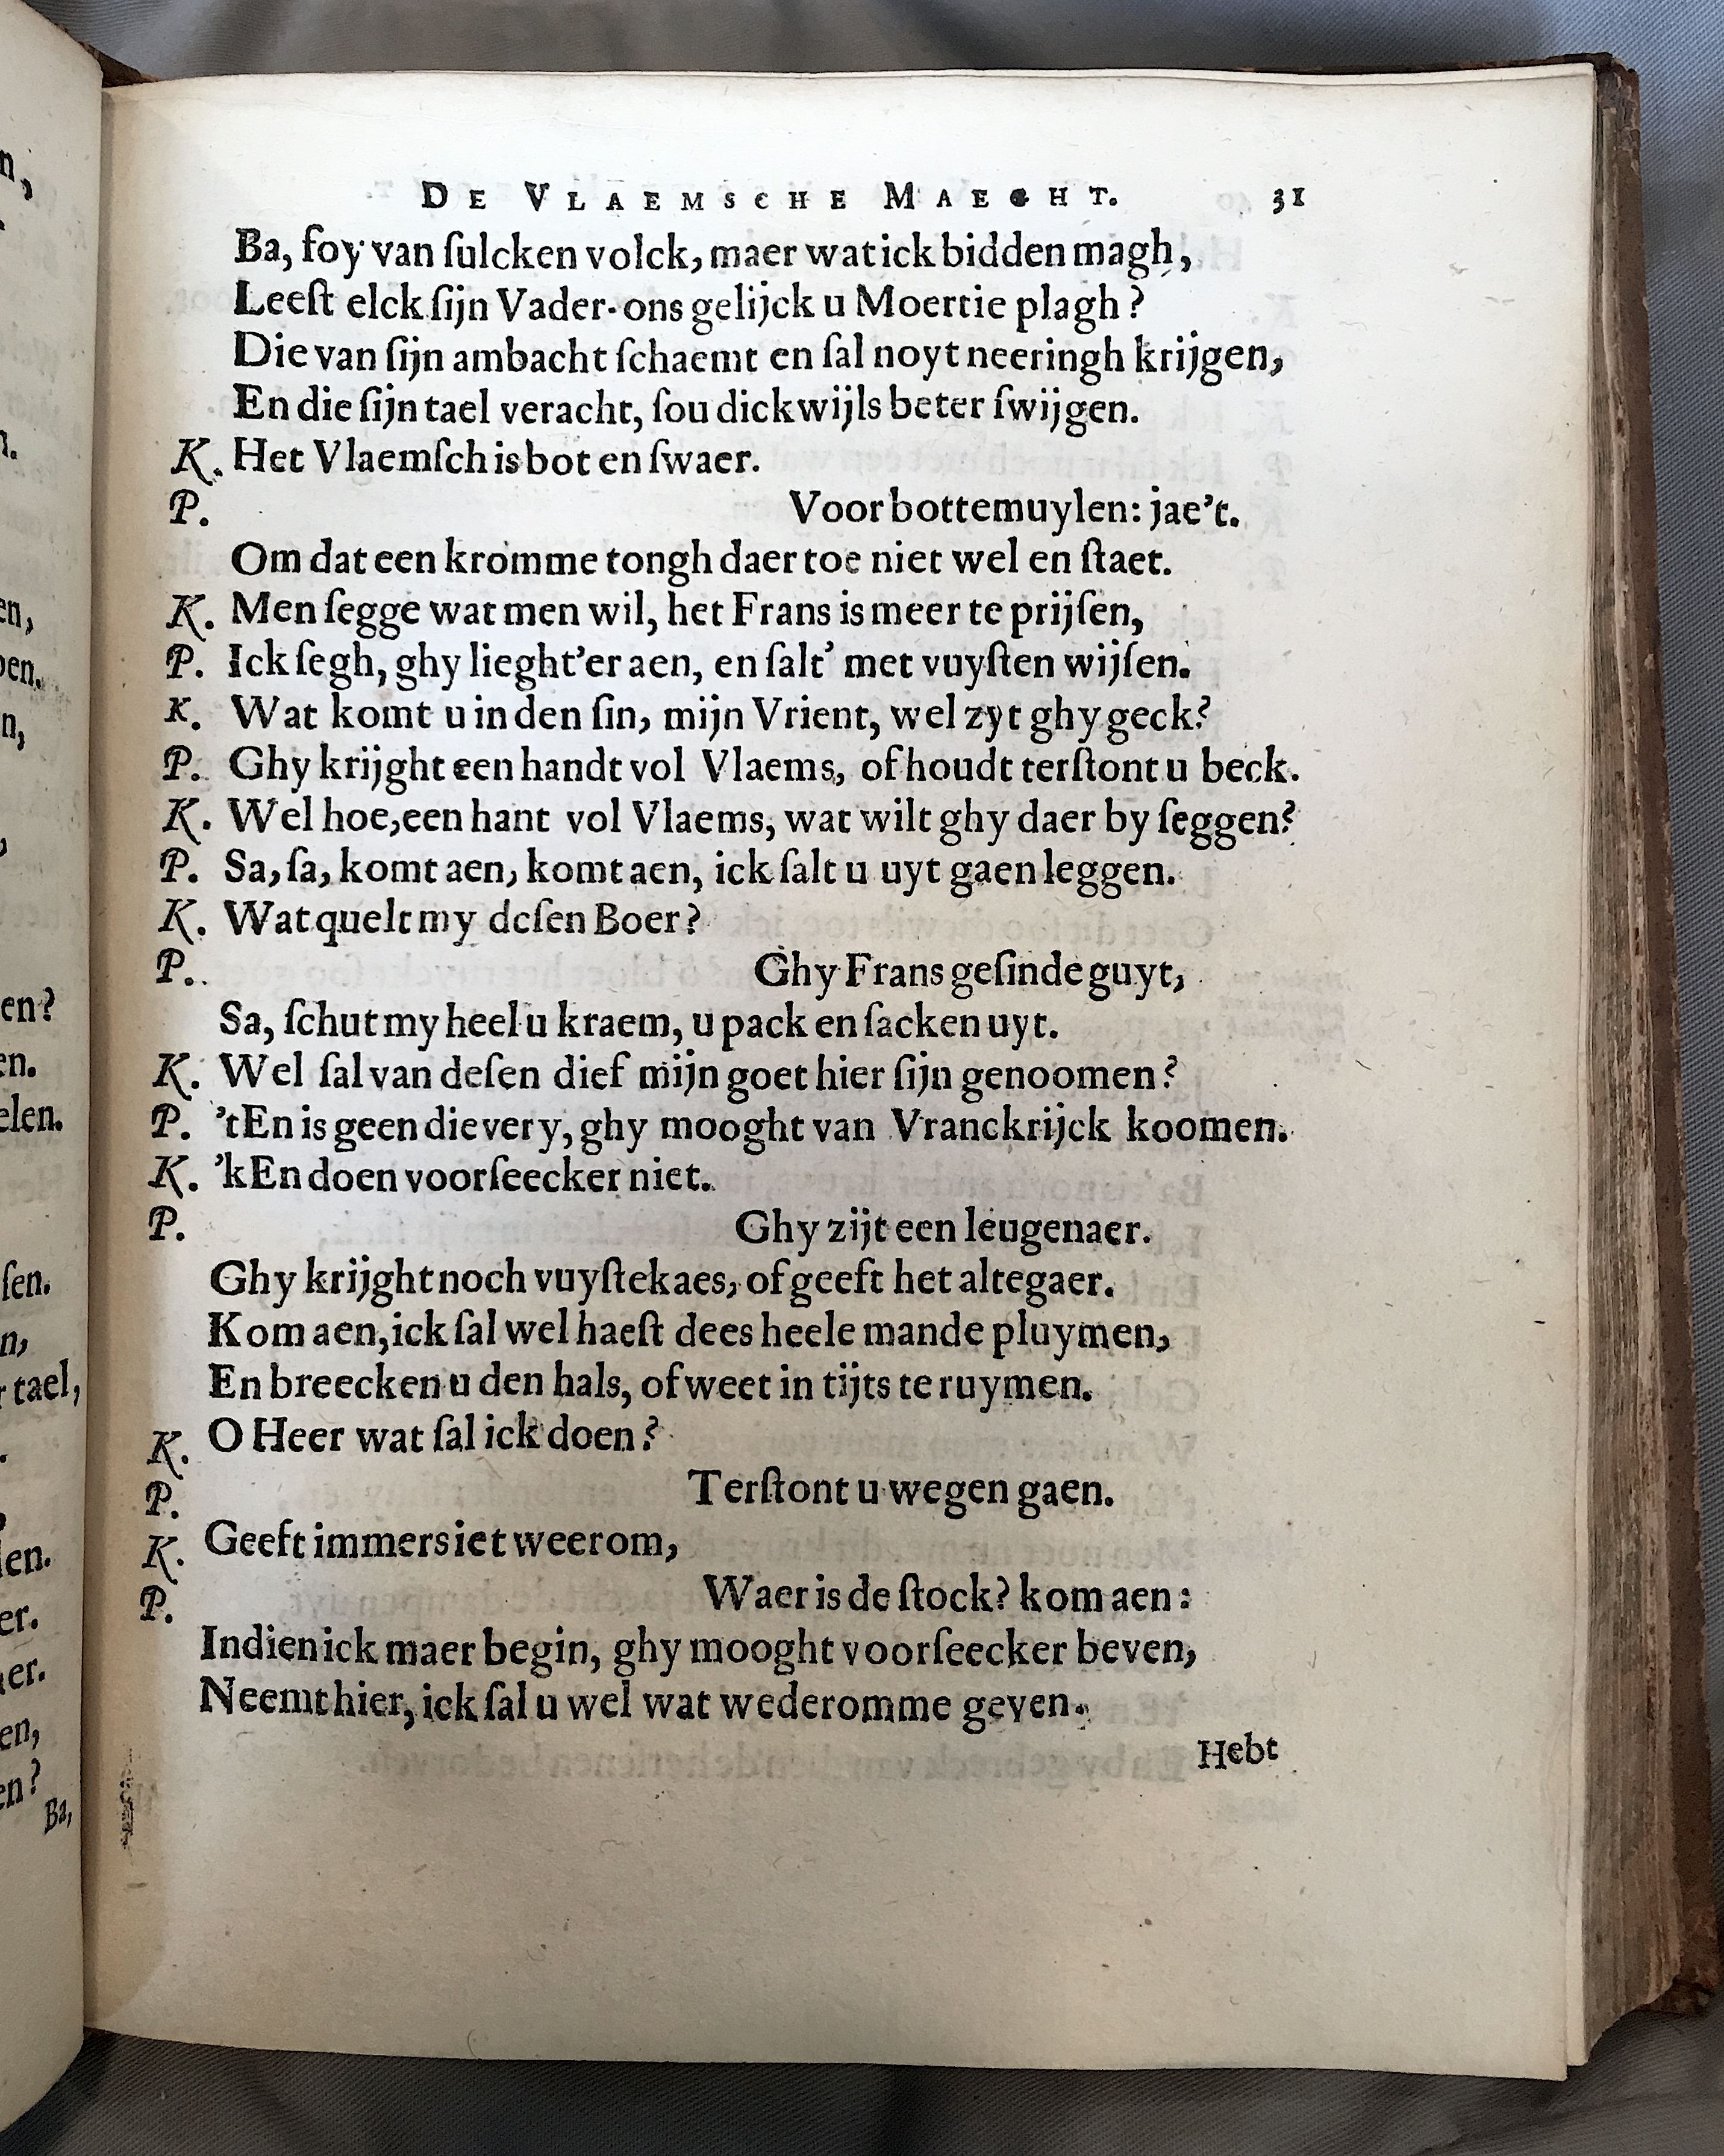 DE VLAEMSCHE MAEGHT. 31
Ba, foy van ſulcken volck, maer wat ick bidden magh,
Leeſt elck ſijn Vader-ons gelijck u Moertie plagh?
Die van ſijn ambacht ſchaemt en ſal noyt neeringh krijgen,
En die ſijn tael veracht, ſou dickwijls beter ſwijgen.
K. Het Vlaemſch is bot en ſwaer.
P. Voor bottemuylen: jae't.
Om dat een kromme tongh daer toe niet wel en ſtaet.
K. Men ſegge wat men wil, het Frans is meer te prijſen,
P. Ick ſegh, ghy lieght'er aen, en ſalt' met vuyſten wijſen.
K. Wat komt u in den ſin, mijn Vrient, wel zyt ghy geck?
P. Ghy krijght een handt vol Vlaems, of houdt terſtont u beck.
K. Wel hoe, een hant vol Vlaems, wat wilt ghy daer by ſeggen?
P. Sa, ſa, komt aen, komt aen, ick ſalt u uyt gaen leggen.
K. Wat quelt my deſen Boer?
P. Ghy Frans geſinde guyt,
Sa, ſchut my heel u kraem, u pack en ſacken uyt.
K. Wel ſal van deſen dief mijn goet hier ſijn genoomen?
P. 'tEn is geen dievery, ghy mooght van Vranckrijck koomen.
K. 'kEn doen voorſeecker niet.
P. Ghy zijt een leugenaer.
Ghy krijght noch vuyſtekaes, of geeft het altegaer.
Kom aen, ick ſal wel haeſt dees heele mande pluymen,
En breecken u den hals, of weet in tijts te ruymen.
K. O Heer wat ſal ick doen?
P. Terſtont u wegen gaen.
K. Geeft immers iet weerom,
P. Waer is de ſtock? kom aen:
Indien ick maer begin, ghy mooght voorſeecker beven,
Neemt hier, ick ſal u wel wat wederomme geven.
Hebt